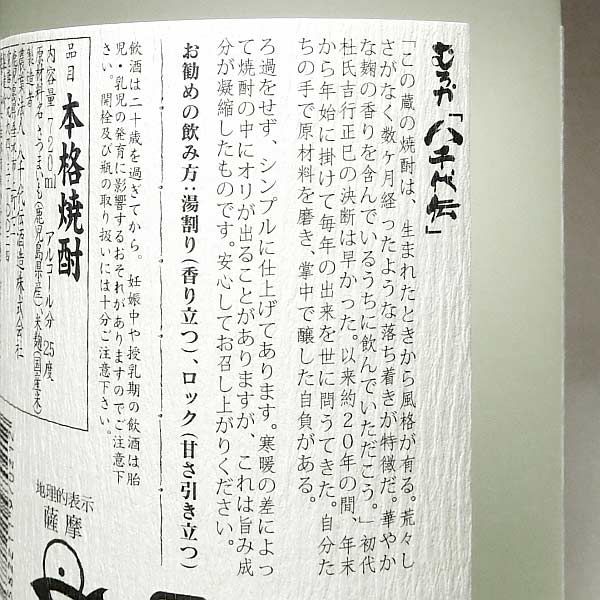 むろか「八千代伝」
「この蔵の焼酎は、生まれたときから風格が有る。荒々し
さがなく数ヶ月経ったような落ち着きが特徴だ。華やか
な麹の香りを含んでいるうちに飲んでいただこう。」初代
杜氏吉行正巳の決断は早かった。以来約20年の間、年末
から年始に掛けて毎年の出来を世に問うてきた。自分た
ちの手で原材料を磨き、掌中で醸した自負がある。
ろ過をせず、シンプルに仕上げてあります。寒暖の差によっ
て焼酎の中にオリが出ることがありますが、これは旨み成
分が凝縮したものです。安心してお召し上がりください。
お勧めの飲み方：湯割り(香り立つ)、ロック(甘さ引き立つ)
飲酒は二十歳を過ぎてから。 妊娠中や授乳期の飲酒は胎
児・乳児の発育に影響するおそれがありますのでご注意下
さい。開栓及び瓶の取り扱いには十分ご注意下さい。
品目 本格焼酎
内容量 720ml アルコール分 25度
原材料名 さつまいも(鹿児島県産)米麹(国産米)
製造者
八千代伝酒造株式会社
地理的表示
薩摩